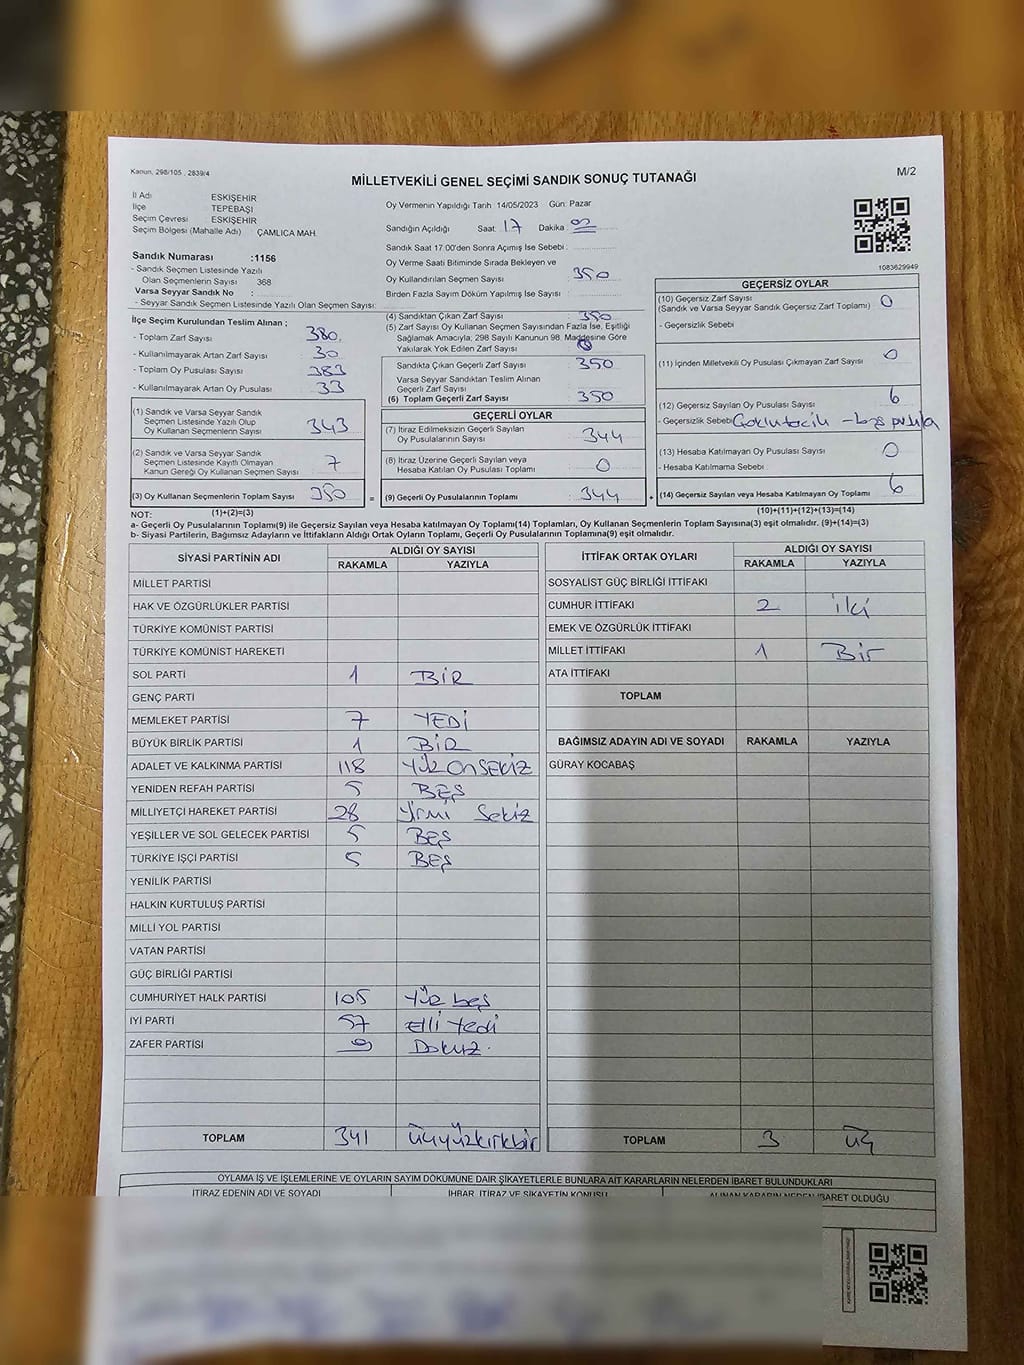 Kanun, 298/105 , 2839/4
M/2
MİLLETVEKİLİ GENEL SEÇİMİ SANDIK SONUÇ TUTANAĞI
İl Adı ESKİŞEHİR
İlçe TEPEBAŞI
Seçim Çevresi ESKİŞEHİR
Seçim Bölgesi (Mahalle Adı) ÇAMLICA MAH.
Sandık Numarası :1156
- Sandık Seçmen Listesinde Yazılı
Olan Seçmenlerin Sayısı 368
Varsa Seyyar Sandık No :
- Seyyar Sandık Seçmen Listesinde Yazılı Olan Seçmen Sayısı:
Oy Vermenin Yapıldığı Tarih 14/05/2023 Gün: Pazar
Sandığın Açıldığı Saat: 17 Dakika:
Sandık Saat 17:00'den Sonra Açımış İse Sebebi :
Oy Verme Saati Bitiminde Sırada Bekleyen ve
Oy Kullandırılan Seçmen Sayısı : 350
Birden Fazla Sayım Döküm Yapılmış İse Sayısı :
1083629949
İlçe Seçim Kurulundan Teslim Alınan ;
- Toplam Zarf Sayısı : 380
- Kullanılmayarak Artan Zarf Sayısı : 30
- Toplam Oy Pusulası Sayısı : 383
- Kullanılmayarak Artan Oy Pusulası : 33
(1) Sandık ve Varsa Seyyar Sandık
Seçmen Listesinde Yazılı Olup
Oy Kullanan Seçmenlerin Sayısı : 343
(2) Sandık ve Varsa Seyyar Sandık
Seçmen Listesinde Kayıtlı Olmayan
Kanun Gereği Oy Kullanan Seçmen Sayısı : 7
(3) Oy Kullanan Seçmenlerin Toplam Sayısı : 350 =
(4) Sandıktan Çıkan Zarf Sayısı : 350
(5) Zarf Sayısı Oy Kullanan Seçmen Sayısından Fazla İse, Eşitliği
Sağlamak Amacıyla; 298 Sayılı Kanunun 98. Maddesine Göre
Yakılarak Yok Edilen Zarf Sayısı : 0
Sandıkta Çıkan Geçerli Zarf Sayısı : 350
Varsa Seyyar Sandıktan Teslim Alınan
Geçerli Zarf Sayısı
(6) Toplam Geçerli Zarf Sayısı : 350
GEÇERLİ OYLAR
(7) İtiraz Edilmeksizin Geçerli Sayılan
Oy Pusulalarının Sayısı : 344
(8) İtiraz Üzerine Geçerli Sayılan veya
Hesaba Katılan Oy Pusulası Toplamı : 0
(9) Geçerli Oy Pusulalarının Toplamı : 344 +
GEÇERSİZ OYLAR
(10) Geçersiz Zarf Sayısı : 0
(Sandık ve Varsa Seyyar Sandık Geçersiz Zarf Toplamı)
- Geçersizlik Sebebi
(11) İçinden Milletvekili Oy Pusulası Çıkmayan Zarf Sayısı : 0
(12) Geçersiz Sayılan Oy Pusulası Sayısı : 6
- Geçersizlik Sebebi pusula
(13) Hesaba Katılmayan Oy Pusulası Sayısı : 0
- Hesaba Katılmama Sebebi :
(14) Geçersiz Sayılan veya Hesaba Katılmayan Oy Toplamı : 6
NOT: (1)+(2)=(3) (10)+(11)+(12)+(13)=(14)
a- Geçerli Oy Pusulalarının Toplamı(9) ile Geçersiz Sayılan veya Hesaba katılmayan Oy Toplamı(14) Toplamları, Oy Kullanan Seçmenlerin Toplam Sayısına(3) eşit olmalıdır. (9)+(14)=(3)
b- Siyasi Partilerin, Bağımsız Adayların ve İttifakların Aldığı Oyların Toplamı, Geçerli Oy Pusulalarının Toplamına(9) eşit olmalıdır.
SİYASİ PARTİNİN ADI ALDIĞI OY SAYISI
RAKAMLA YAZIYLA
MİLLET PARTİSİ
HAK VE ÖZGÜRLÜKLER PARTİSİ
TÜRKİYE KOMÜNİST PARTİSİ
TÜRKİYE KOMÜNİST HAREKETİ
SOL PARTİ 1 BİR
GENÇ PARTİ
MEMLEKET PARTİSİ 7 YEDİ
BÜYÜK BİRLİK PARTİSİ 1 BİR
ADALET VE KALKINMA PARTİSİ 118 YÜZ ONSEKİZ
YENİDEN REFAH PARTİSİ 5 BEŞ
MİLLİYETÇİ HAREKET PARTİSİ 28 Yirmi Sekiz
YEŞİLLER VE SOL GELECEK PARTİSİ 5 BEŞ
TÜRKİYE İŞÇİ PARTİSİ 5 BEŞ
YENİLİK PARTİSİ
HALKIN KURTULUŞ PARTİSİ
MİLLİ YOL PARTİSİ
VATAN PARTİSİ
GÜÇ BİRLİĞİ PARTİSİ
CUMHURİYET HALK PARTİSİ 105 Yüz beş
İYİ PARTİ 57 Elli Yedi
ZAFER PARTİSİ 9 Dokuz.
TOPLAM 341 üçyüzkırkbir
İTTİFAK ORTAK OYLARI ALDIĞI OY SAYISI
RAKAMLA YAZIYLA
SOSYALİST GÜÇ BİRLİĞİ İTTİFAKI
CUMHUR İTTİFAKI 2 iki
EMEK VE ÖZGÜRLÜK İTTİFAKI
MİLLET İTTİFAKI 1 Bir
ATA İTTİFAKI
TOPLAM
BAĞIMSIZ ADAYIN ADI VE SOYADI RAKAMLA YAZIYLA
GÜRAY KOCABAŞ
TOPLAM 3 üç
OYLAMA İŞ VE İŞLEMLERİNE VE OYLARIN SAYIM DÖKÜMÜNE DAİR ŞİKAYETLERLE BUNLARA AİT KARARLARIN NELERDEN İBARET BULUNDUKLARI
İTİRAZ EDENİN ADI VE SOYADI İHBAR, İTİRAZ VE ŞİKAYETİN KONUSU ALINAN KARARIN NEDEN İBARET OLDUĞU